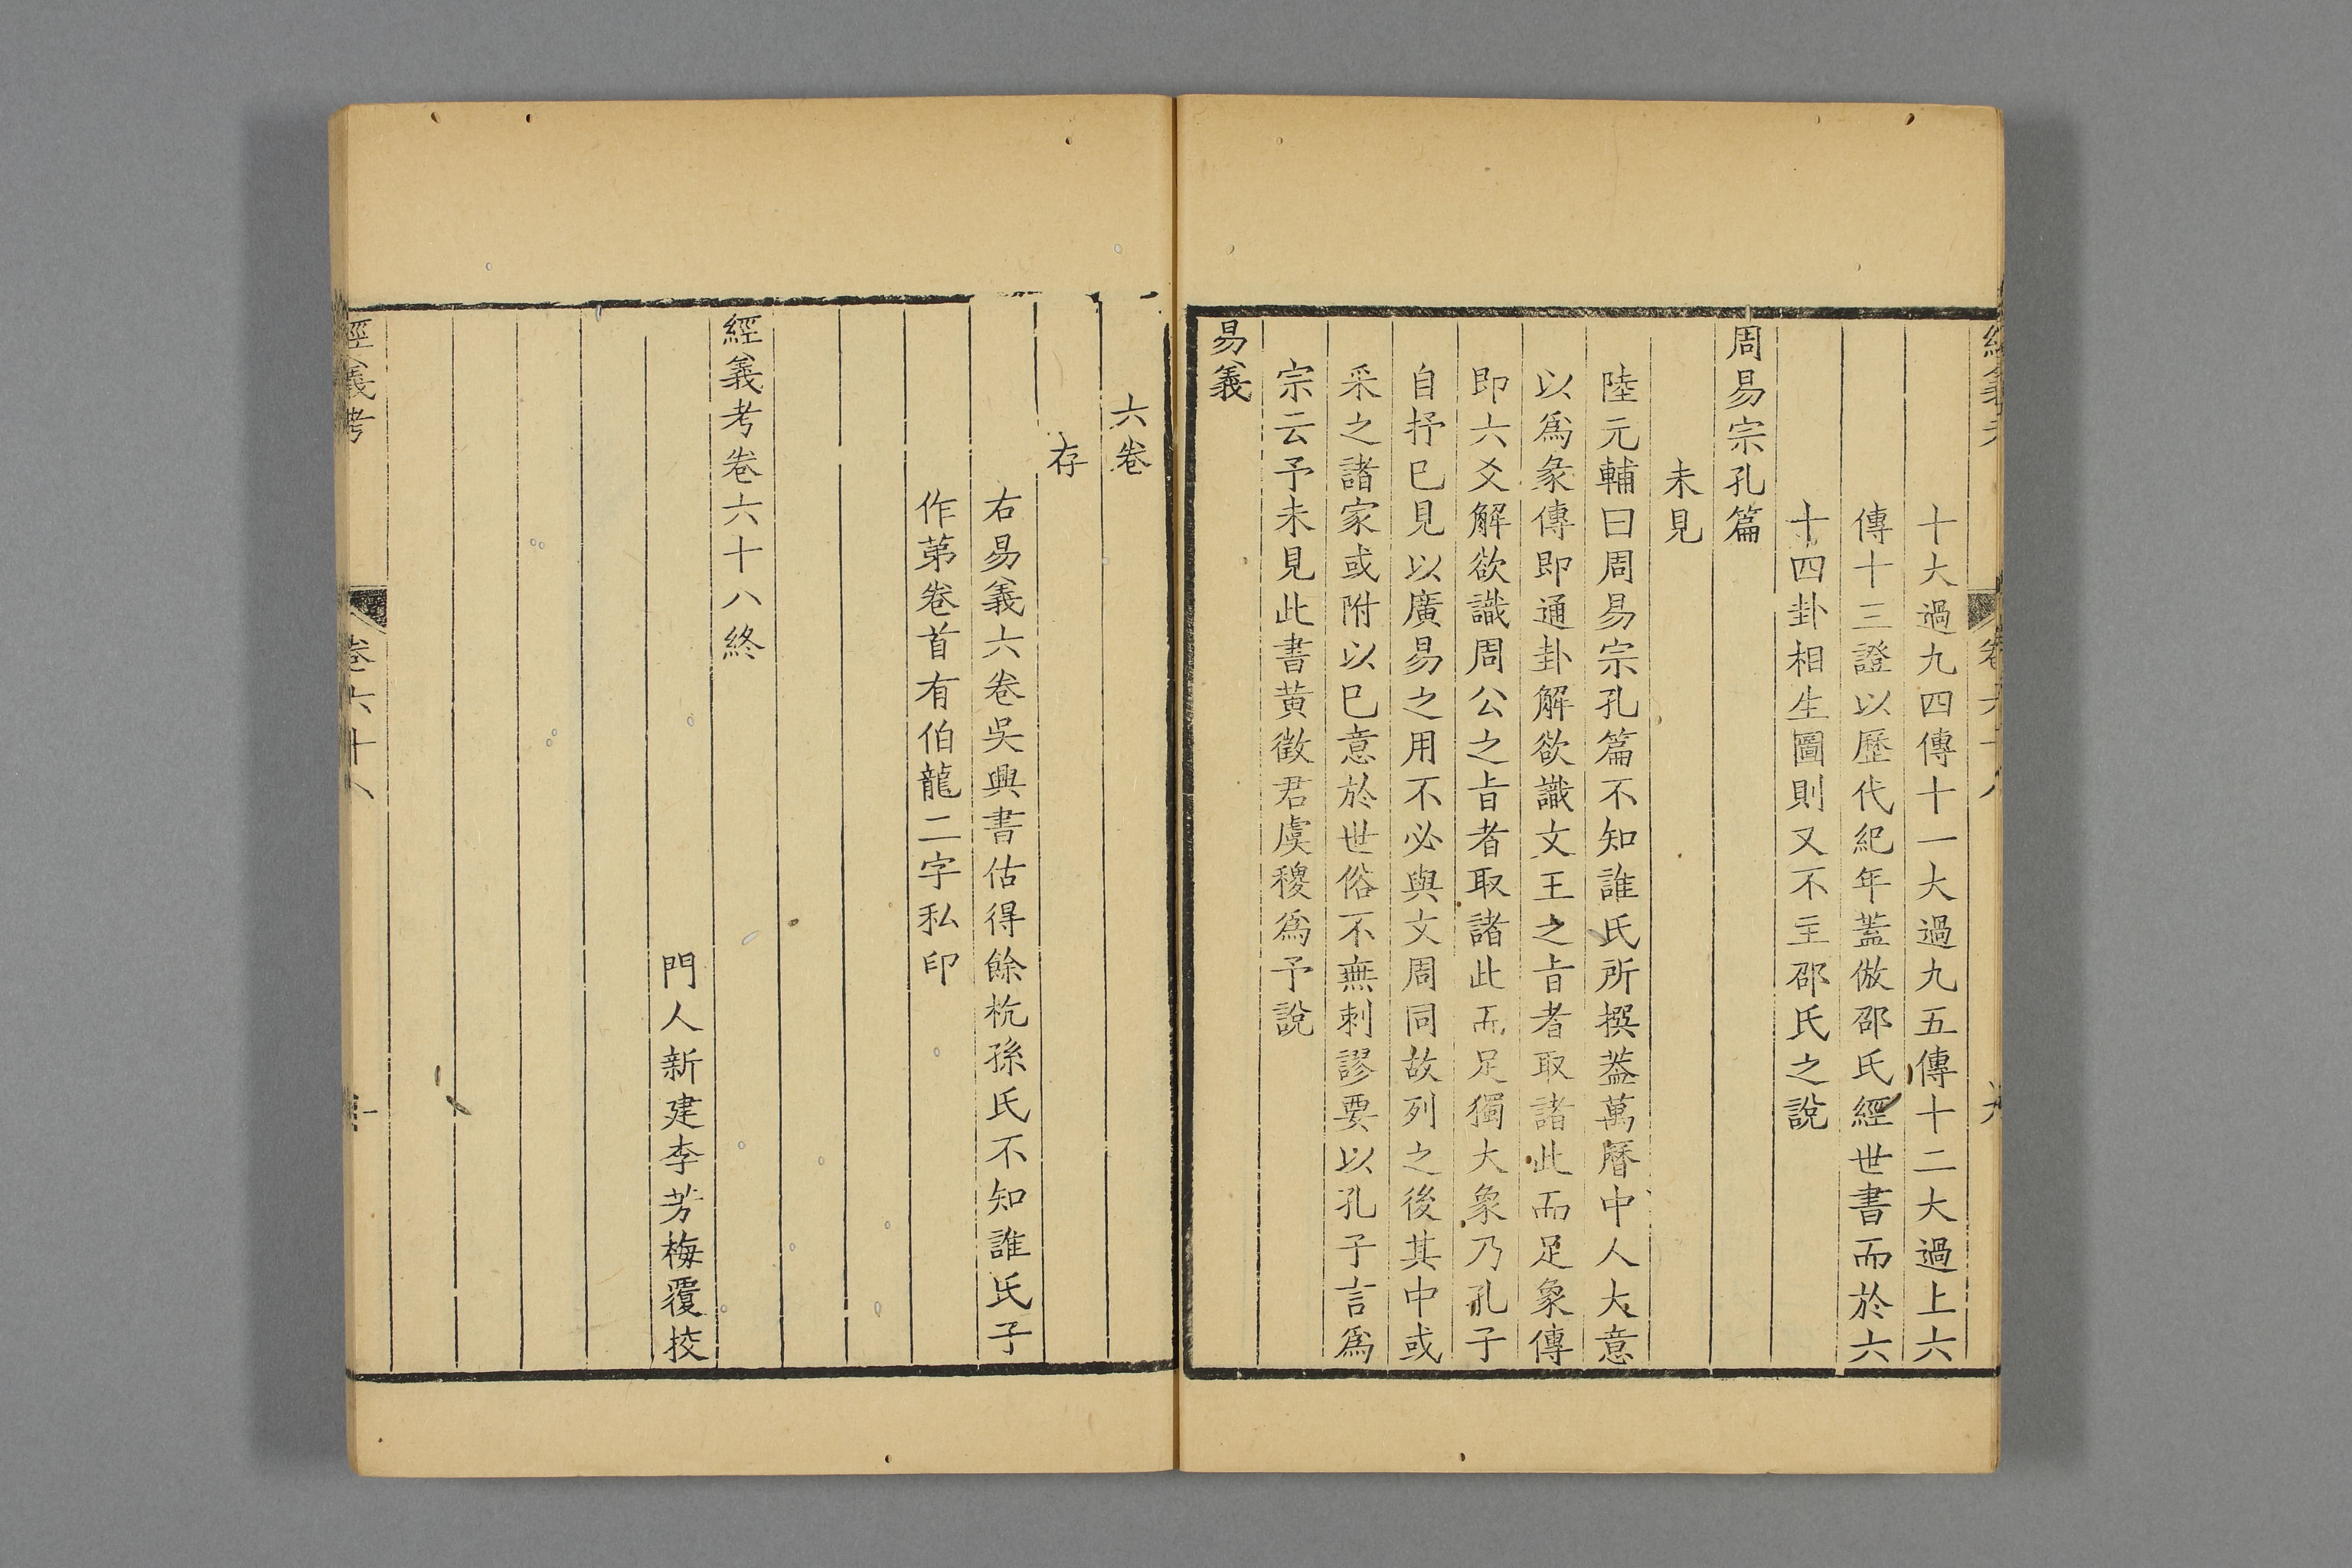 經義考 卷六十八
十大過九四傳十一大過九五傳十二大過上六
傳十三證以歷代紀年蓋倣邵氏經世書而於六
十四卦相生圖則又不主邵氏之說
周易宗孔篇
未見
陸元輔曰周易宗孔篇不知誰氏所撰葢萬曆中人大意
以爲彖傳即通卦解欲識文王之㫖者取諸此而足象傳
即六爻解欲識周公之㫖者取諸此而足獨大象乃孔子
自抒巳見以廣易之用不必與文周同故列之後其中或
采之諸家或附以巳意於世俗不無刺謬要以孔子言爲
宗云予未見此書黄徵君虞稷爲予說
易義
六卷
存
右易義六卷吳興書估得餘杭孫氏不知誰氏子
作苐卷首有伯龍二字私印
經義考卷六十八終
門人新建李芳梅覆挍
經義考 卷六十八